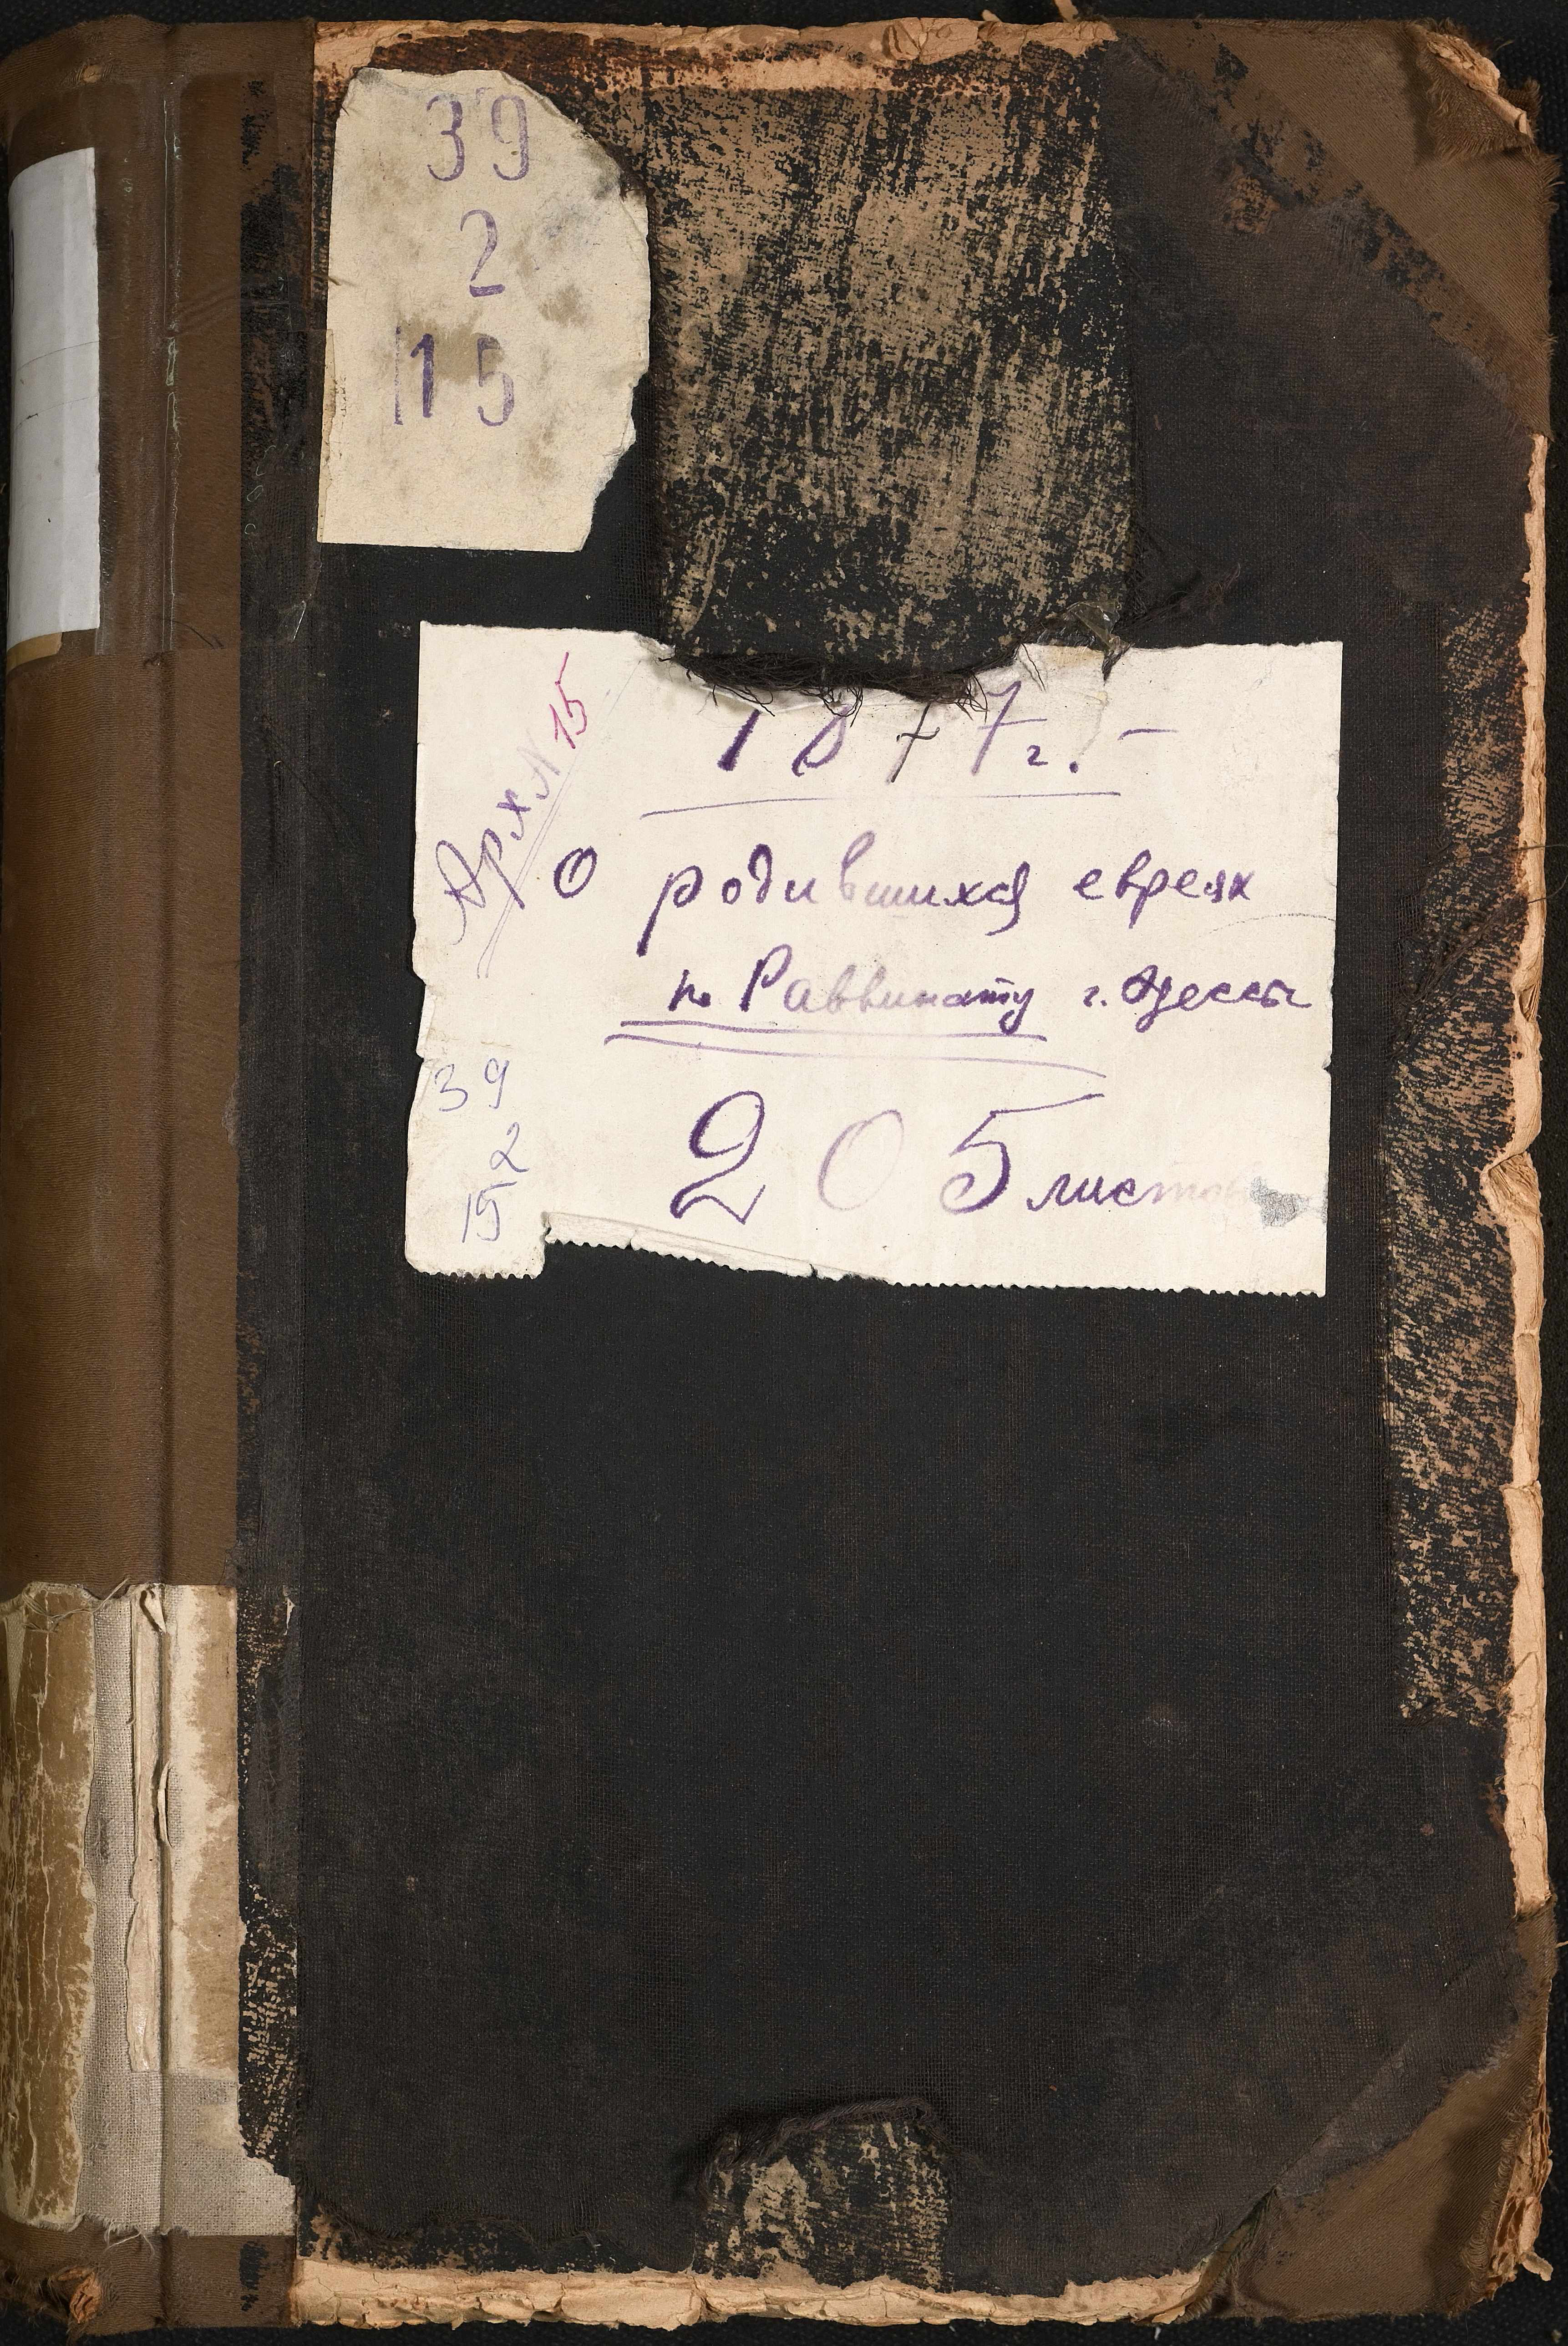 39
2
15
Арх N 15
1877 г. –
О родившихся евреях
по Раввинату г. Одессы
39
2
15
205 листов